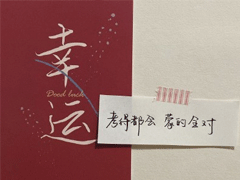 幸
Good luck
运
考得都会 蒙的全对